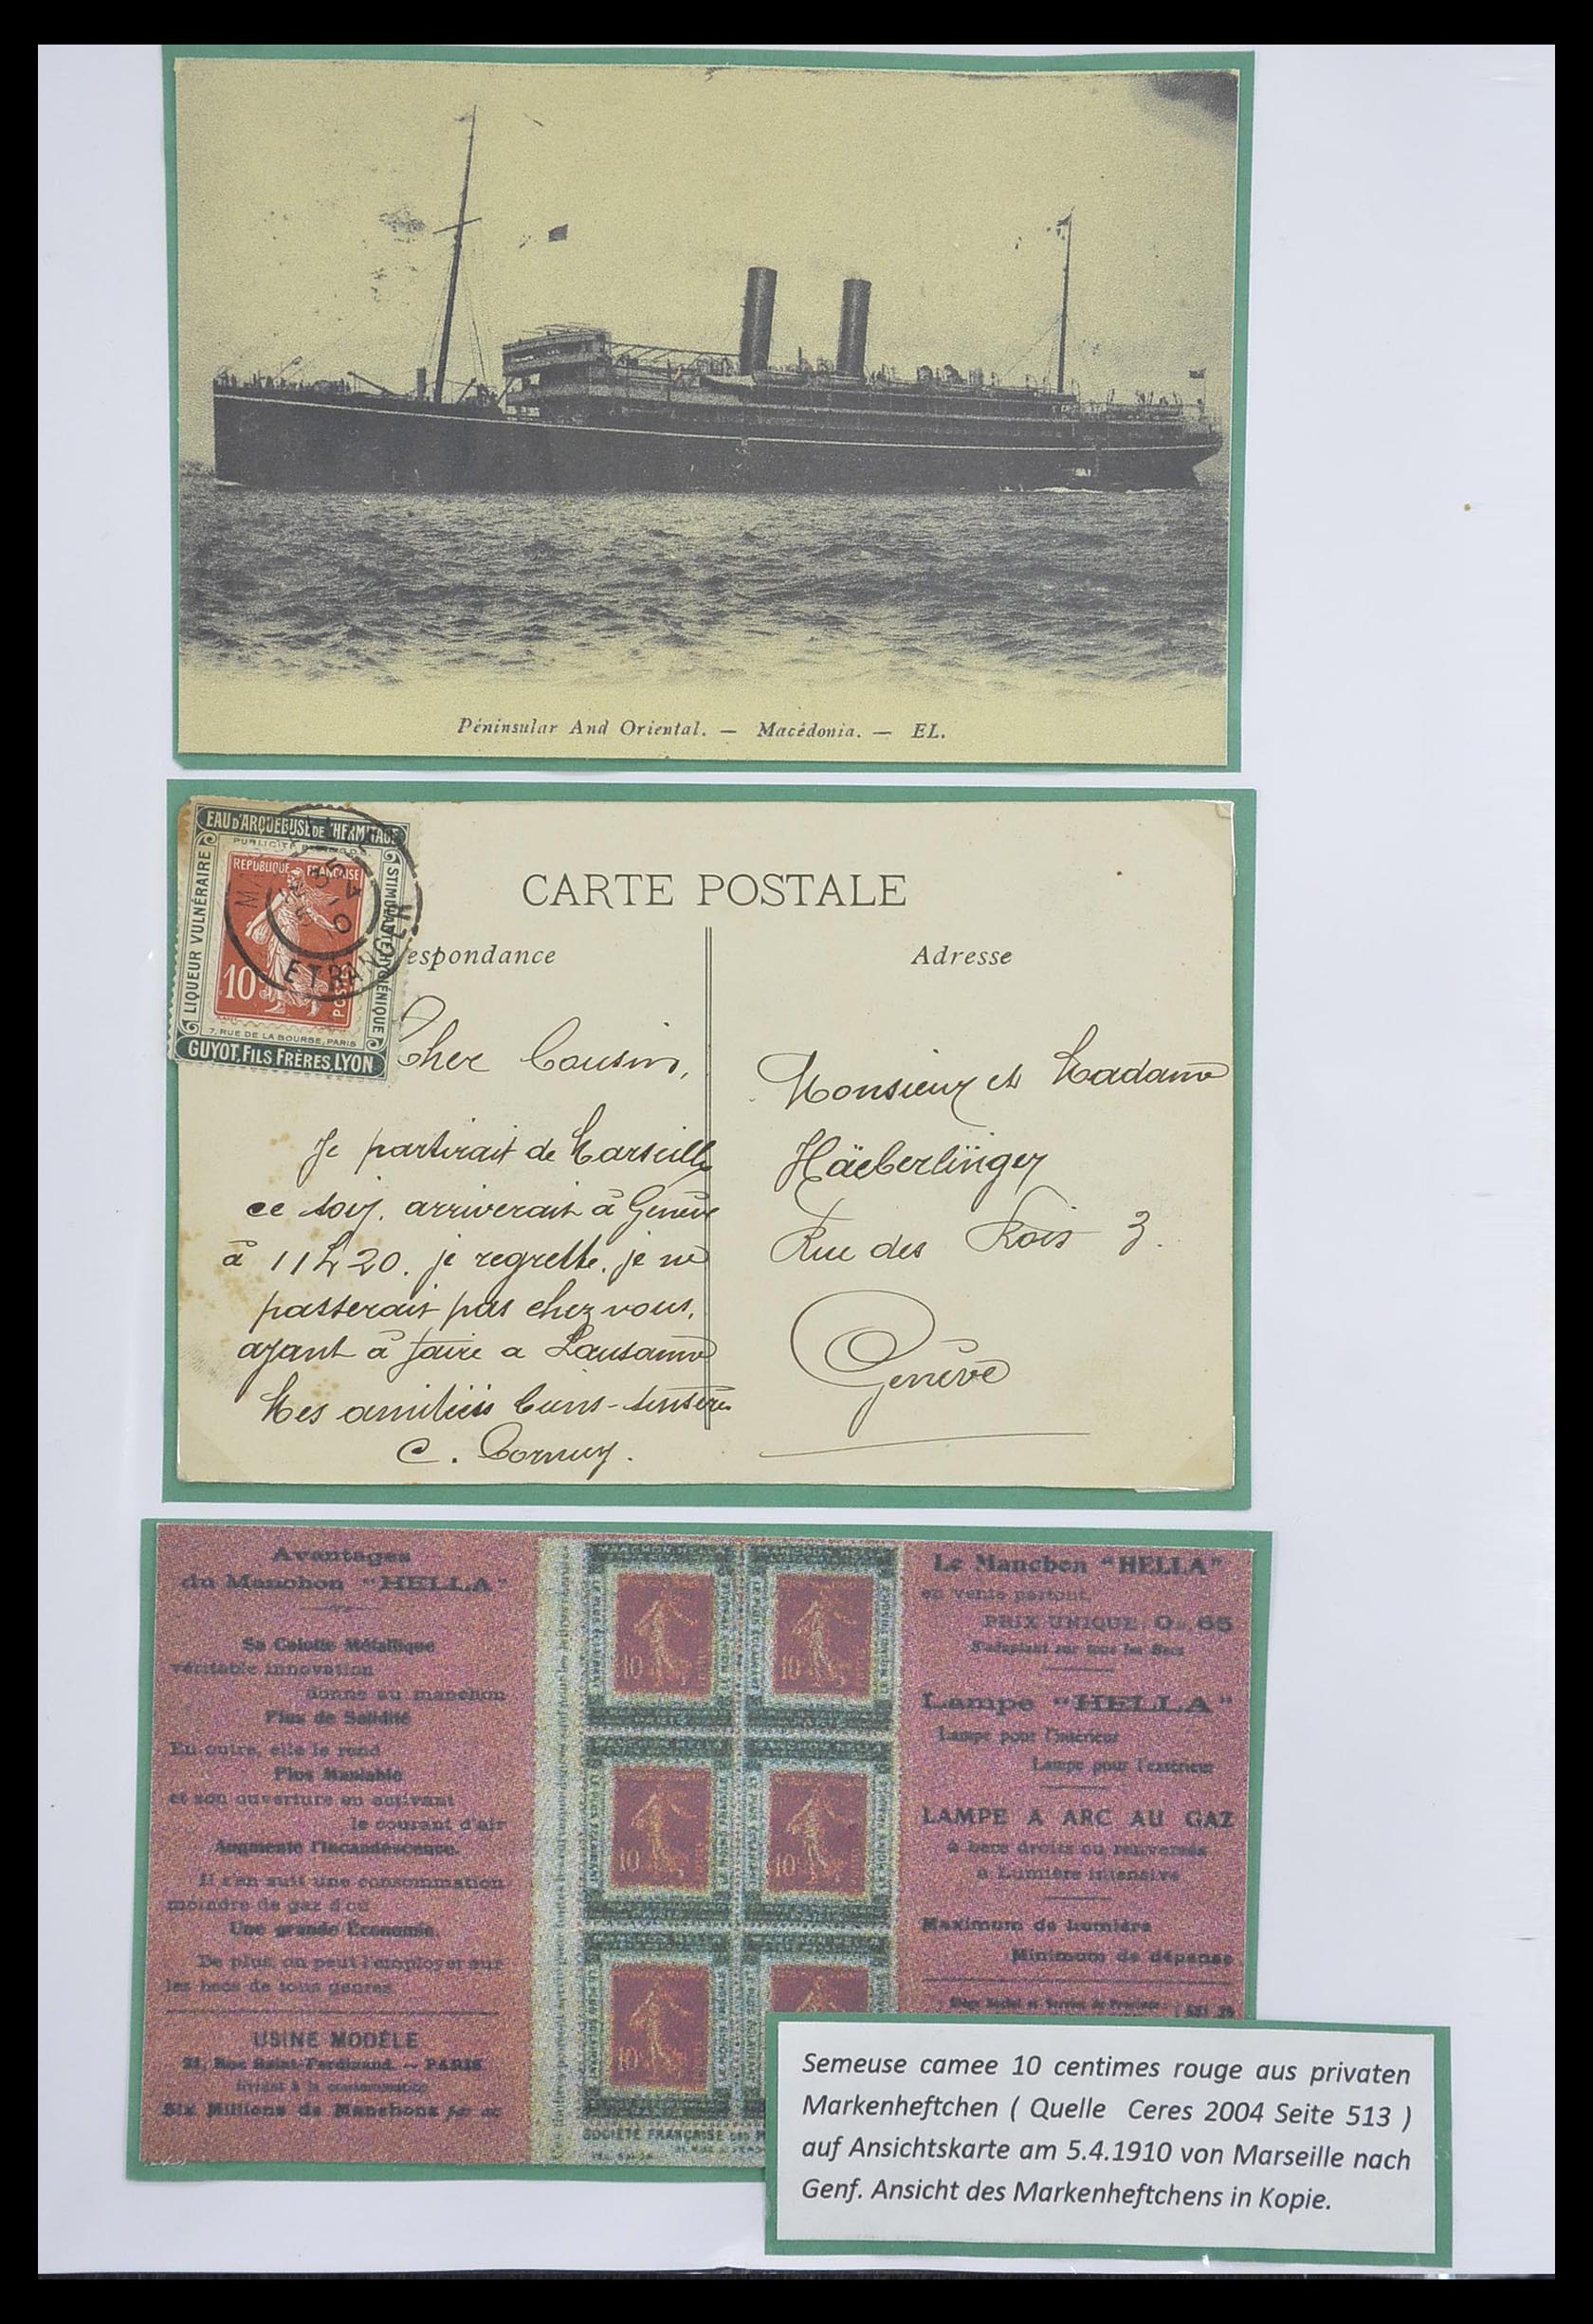 Péninsular And Oriental. — Macédonia. — EL.
EAU D'ARQUEBUSE DE L'HERMITAGE
LIQUEUR VULNÉRAIRE
REPUBLIQUE FRANÇAISE
10
POSTES
STIMULANTE HYGIÉNIQUE
7, RUE DE LA BOURSE, PARIS
GUYOT, FILS FRÈRES, LYON
ETRANGER
CARTE POSTALE
espondance
Adresse
Cher Cousin,
Je partirait de Marseille
ce soir. arriverait à Genève
à 11h20. je regrette. je ne
passerais pas chez vous.
ayant à faire a Lausanne
Mes amitiés biens-sensères
C. Cornuz.
Monsieur et Madame
Häeberlïnger
Rue des Rois 3.
Genève
Avantages
du Manchon "HELLA"
Sa Calotte Métallique
véritable innovation
donne au manchon
Plus de Solidité
En outre, elle le rend
Plus Maniable
et son ouverture en activant
le courant d'air
Augmente l'Incandescence.
Il s'en suit une consommation
moindre de gaz d'où
Une grande Économie.
De plus on peut l'employer sur
les becs de tous genres.
USINE MODÈLE
21, Rue Saint-Ferdinand. — PARIS
livrant à la consommation
Six Millions de Manchons par an
MANCHON HELLA
10
10
10
10
10
SOCIÉTÉ FRANÇAISE DES
Le Manchon "HELLA"
en vente partout.
PRIX UNIQUE 0f. 65
S'adaptant sur tous les Becs
Lampe "HELLA"
Lampe pour l'intérieur
Lampe pour l'extérieur
LAMPE A ARC AU GAZ
à becs droits ou renversés
à Lumière intensive
Maximum de lumière
Minimum de dépense
Semeuse camee 10 centimes rouge aus privaten
Markenheftchen ( Quelle Ceres 2004 Seite 513 )
auf Ansichtskarte am 5.4.1910 von Marseille nach
Genf. Ansicht des Markenheftchens in Kopie.